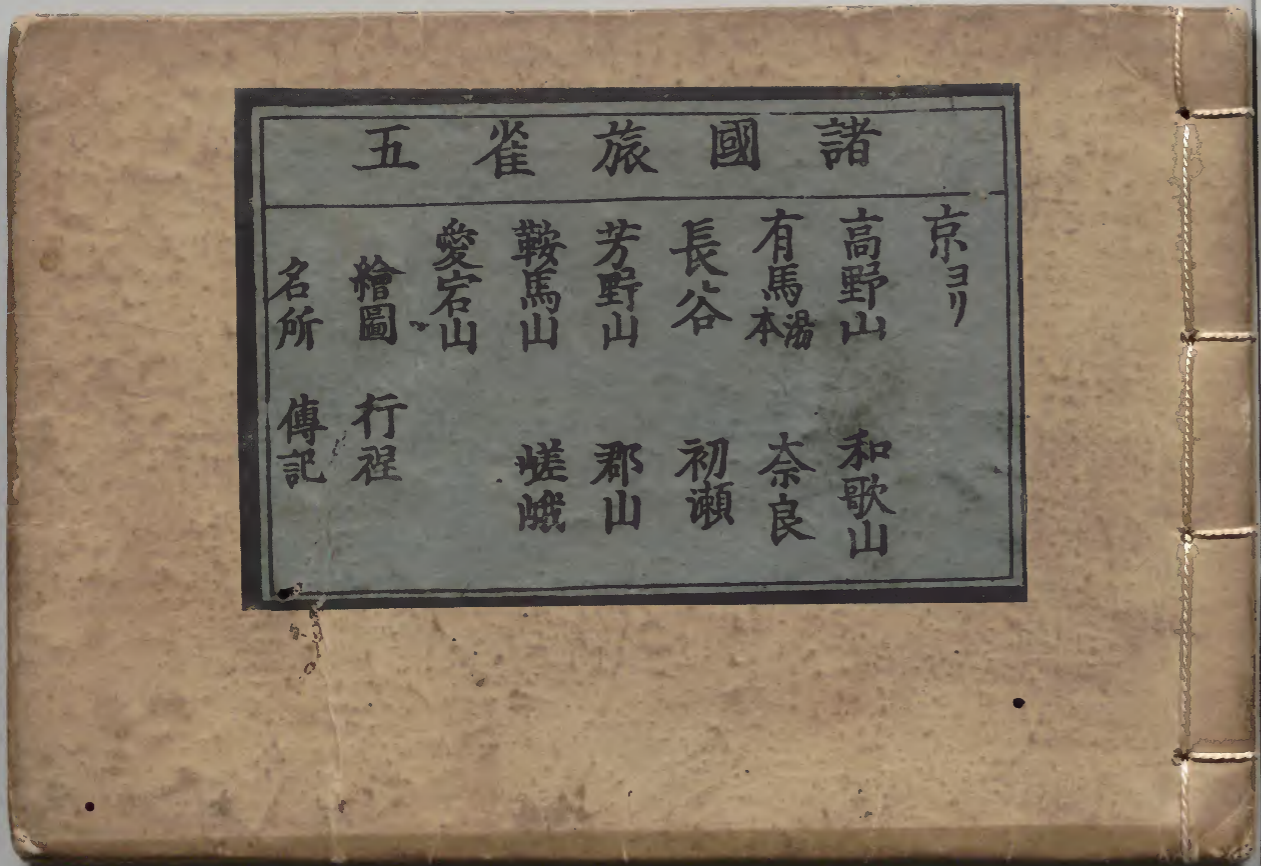 諸國旅雀五
京ヨリ
高野山 和歌山
有馬湯本 奈良
長谷 初瀬
芳野山 郡山
鞍馬山 嵯峨
愛宕山
繪圖 行程
名所 傳記